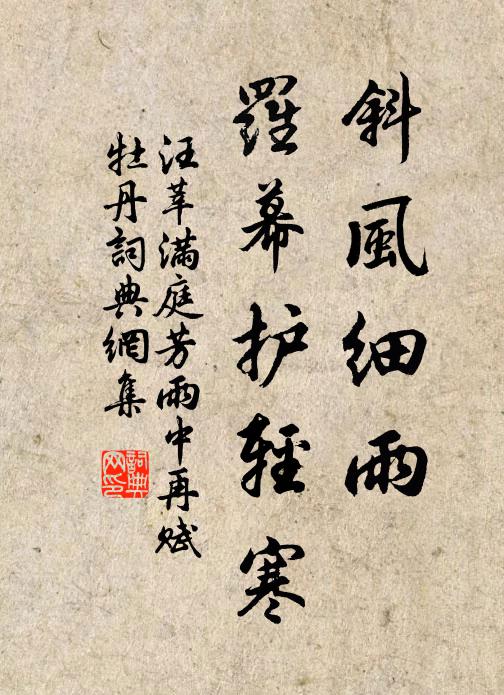 斜風細雨
羅幕护輕寒
汪莘满庭芳雨中再赋
牡丹詞典網集
詞典网印